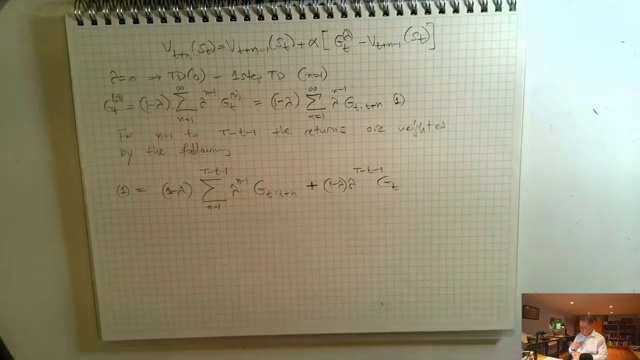 V_{t+n}(S_t) = V_{t+n-1}(S_t) + α[G_t^λ − V_{t+n-1}(S_t)]
λ=0 ⇒ TD(0) − 1 step TD (n=1)
G_t^{(λ)} = (1-λ) ∑_{n=1}^{∞} λ^{n-1} G_t^{(n)} = (1-λ) ∑_{n=1}^{∞} λ^{n-1} G_{t:t+n} (1)
For n=1 to T-t-1 the returns are weighted
by the following
(1) = (1-λ) ∑_{n=1}^{T-t-1} λ^{n-1} G_{t:t+n} + (1-λ)λ^{T-t-1} G_t